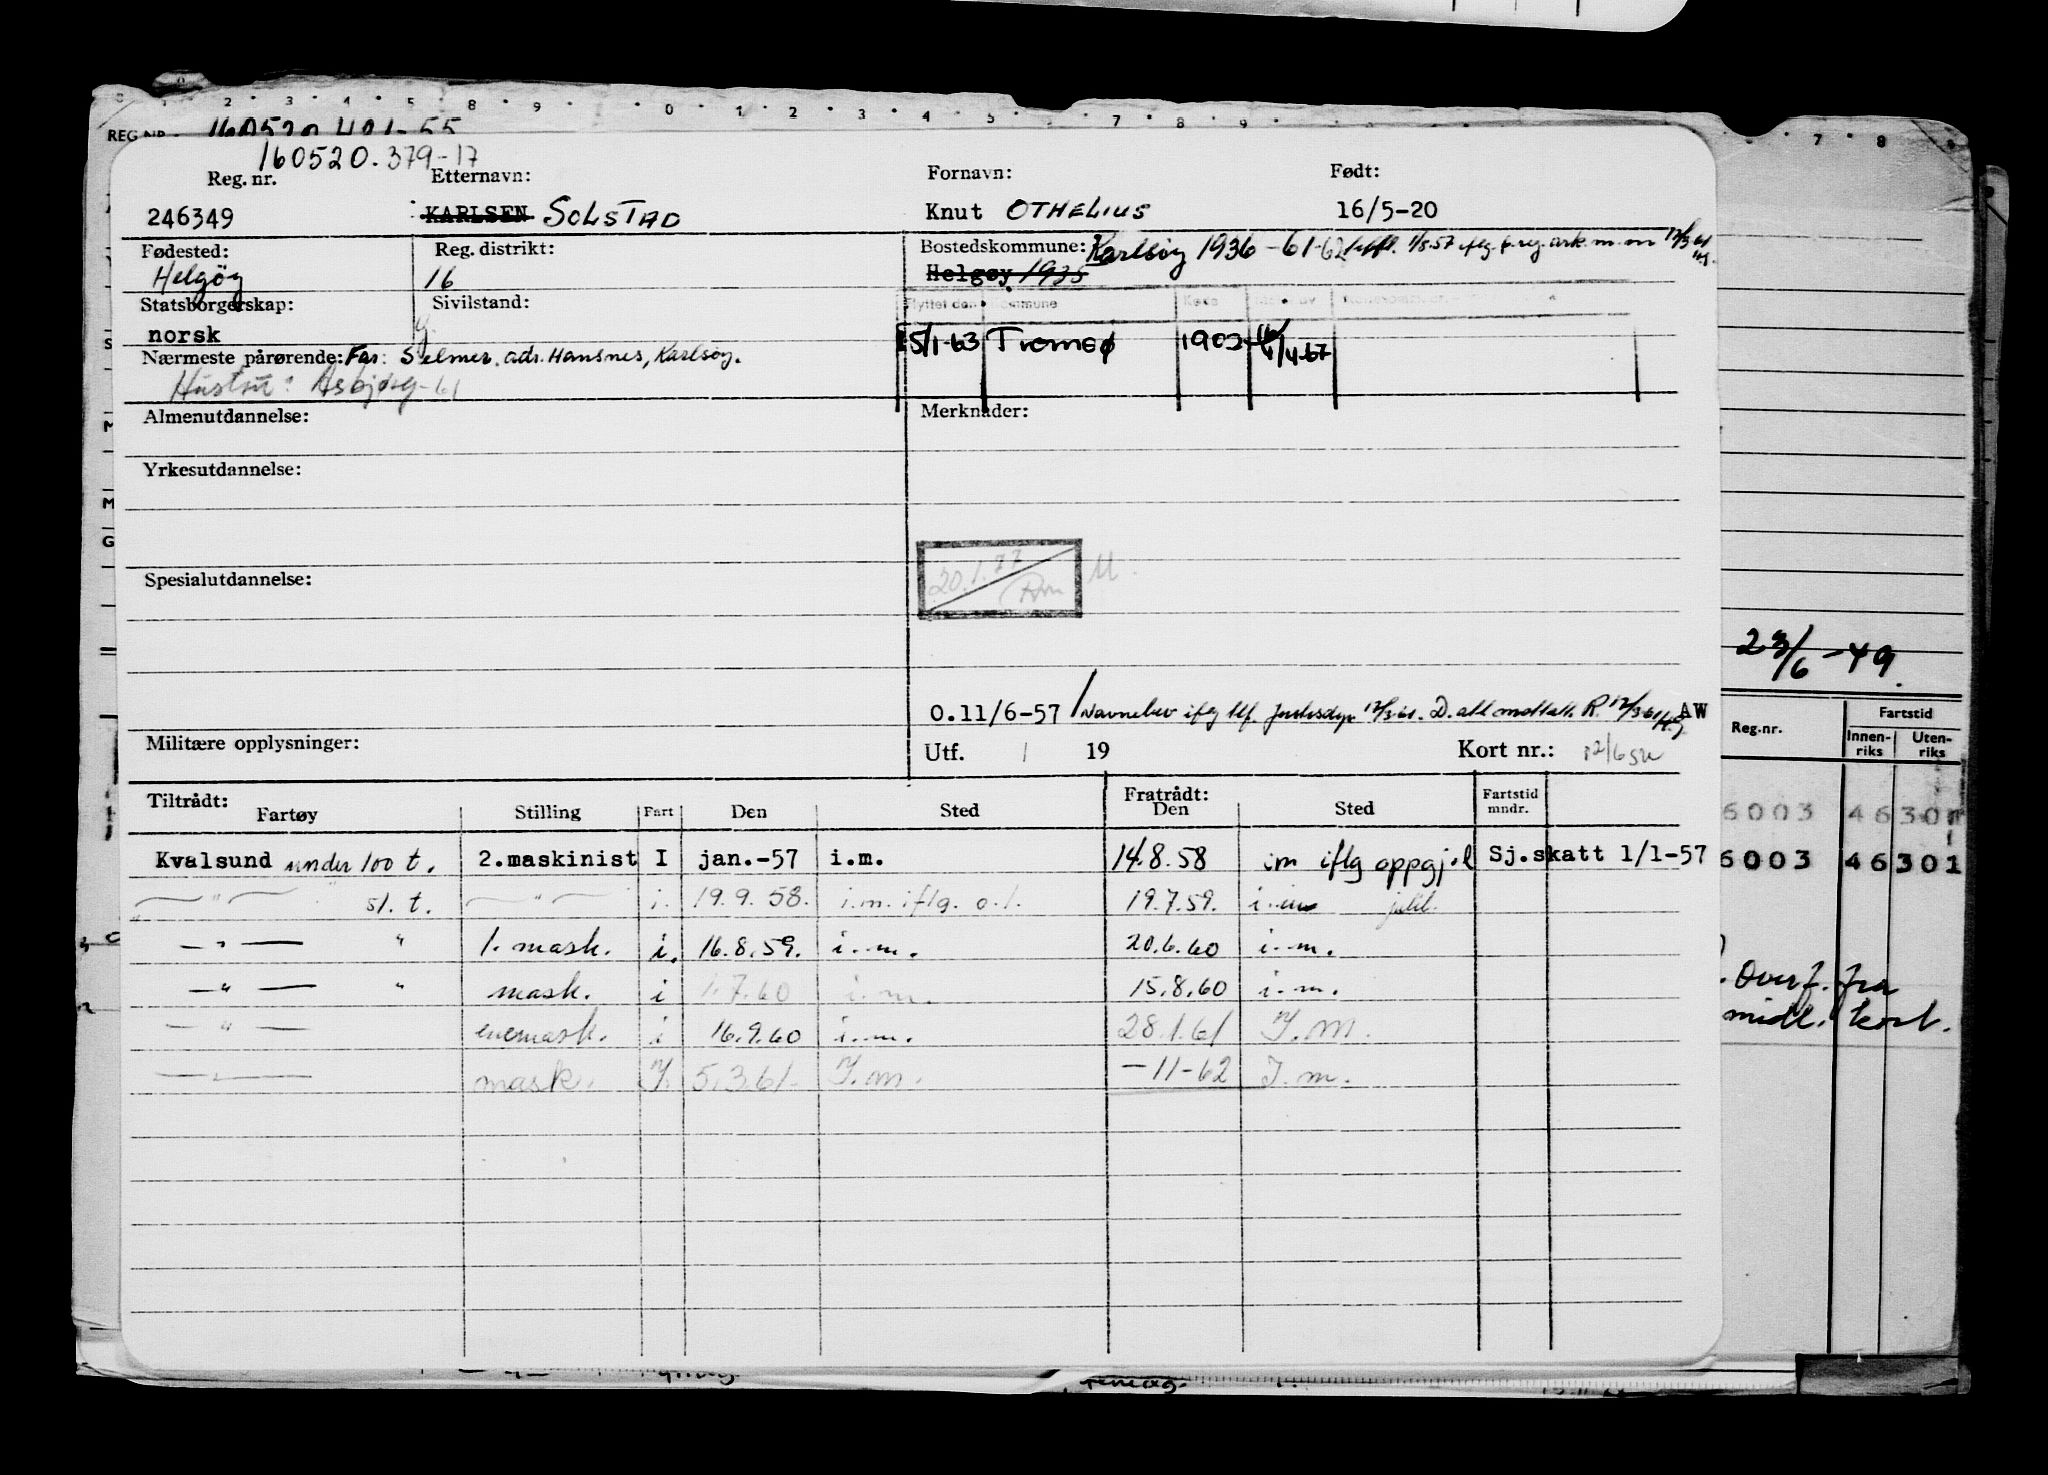 REG.NR. 160520 401-55
160520.379-17
Reg. nr. Etternavn: Fornavn: Født:
246349 KARLSEN SOLSTAD Knut OTHELIUS 16/5-20
Fødested: Reg. distrikt: Bostedskommune: Karlsøy 1936-61-62
Helgöy 16 Helgøy 1935
Statsborgerskap: Sivilstand: Flyttet den Kommune
norsk g. 15/1-63 Tromsø 1902 /4-67
Nærmeste pårørende: Far: Selmer. adr. Hansnes, Karlsøy.
Hustru: Asbjørg-61
Almenutdannelse: Merknader:
Yrkesutdannelse:
20.1.77 M.
Spesialutdannelse:
23/6-49.
O.11/6-57 / Navnebev iflg tlf. 12/3-61. AW
Militære opplysninger: Utf. / 19 Kort nr.: 12/6
Reg.nr. Fartstid
Innen-riks Uten-riks
Tiltrådt: Fratrådt: Fartstid mndr.
Fartøy Stilling Fart Den Sted Den Sted
6003 46 301
Kvalsund under 100 t. 2.maskinist I jan.-57 i.m. 14.8.58 im iflg oppgj.l Sj.skatt 1/1-57
6003 46 301
— " — st. t. — " — i. 19.9.58. i.m. iflg. o.l. 19.7.59. i.m.
— " — " 1. mask. i. 16.8.59. i.m. 20.6.60 i.m.
— " — " mask. i 1.7.60 i.m. 15.8.60 i.m.
Overf. fra
midl. kort.
— " — enemask. i 16.9.60 i.m. 28.1.61 I.M.
— " — mask. I. 5.3.61. I.m. -11-62 I.m.